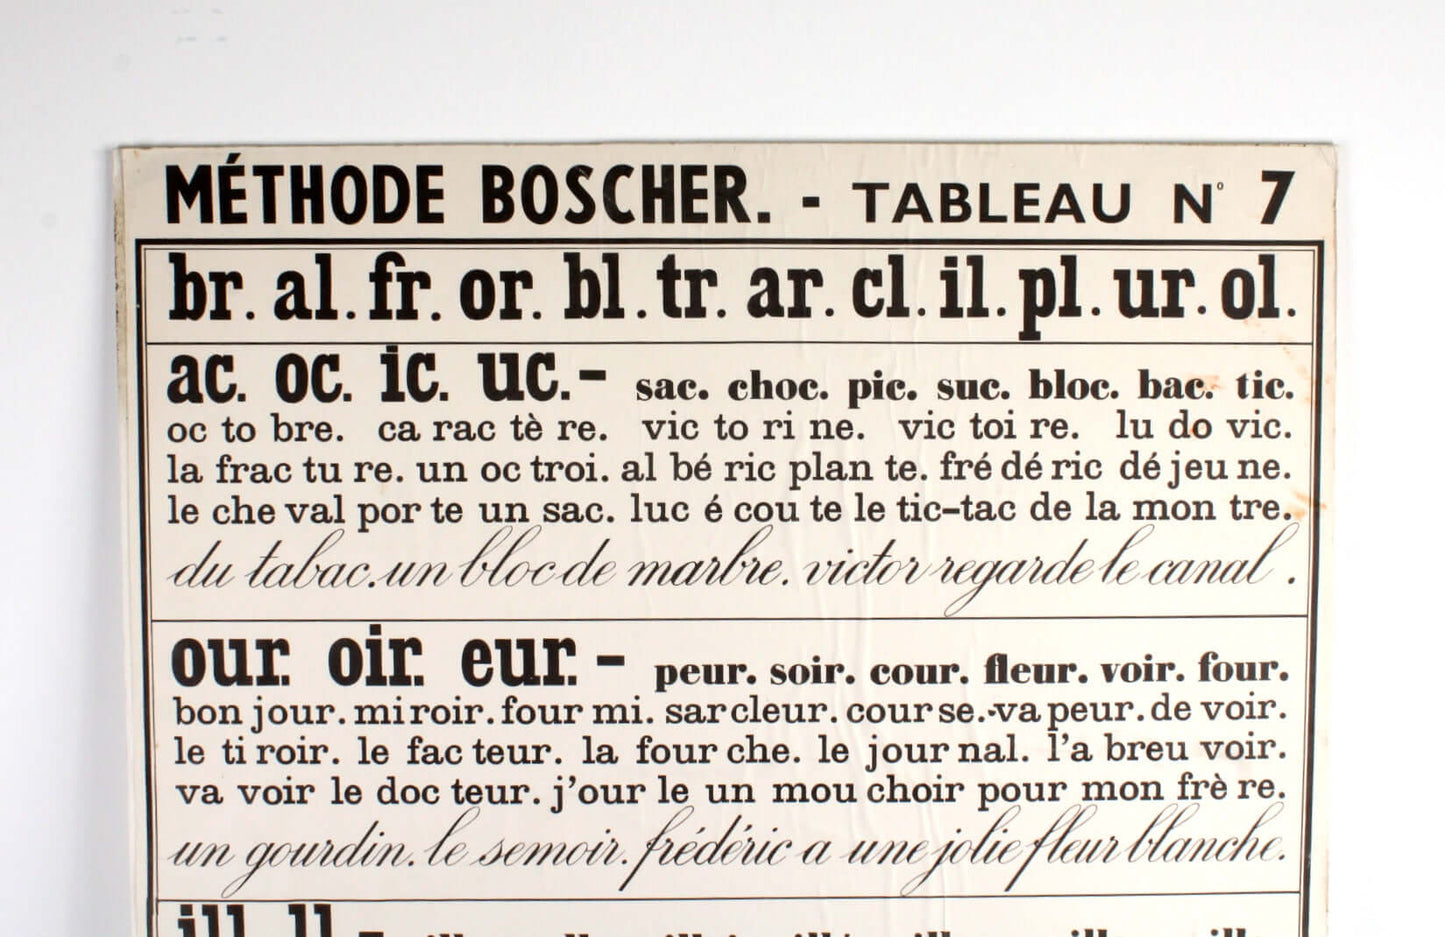 MÉTHODE BOSCHER. - TABLEAU Nº 7
br. al. fr. or. bl. tr. ar. cl. il. pl. ur. ol.
ac. oc. ic. uc. - sac. choc. pic. suc. bloc. bac. tic.
oc to bre. ca rac tè re. vic to ri ne. vic toi re. lu do vic.
la frac tu re. un oc troi. al bé ric plan te. fré dé ric dé jeu ne.
le che val por te un sac. luc é cou te le tic-tac de la mon tre.
du tabac. un bloc de marbre. victor regarde le canal.
our. oir. eur. - peur. soir. cour. fleur. voir. four.
bon jour. mi roir. four mi. sar cleur. cour se. va peur. de voir.
le ti roir. le fac teur. la four che. le jour nal. l'a breu voir.
va voir le doc teur. j'our le un mou choir pour mon frè re.
un gourdin. le semoir. frédéric a une jolie fleur blanche.